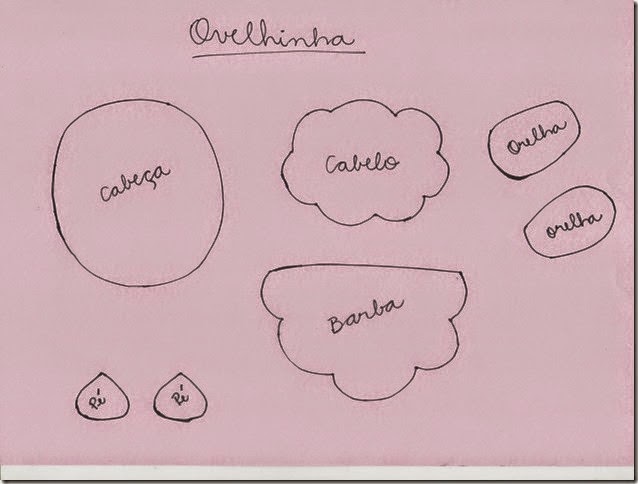 Ovelhinha
Cabeça
Cabelo
Orelha
orelha
Barba
Pé
Pé